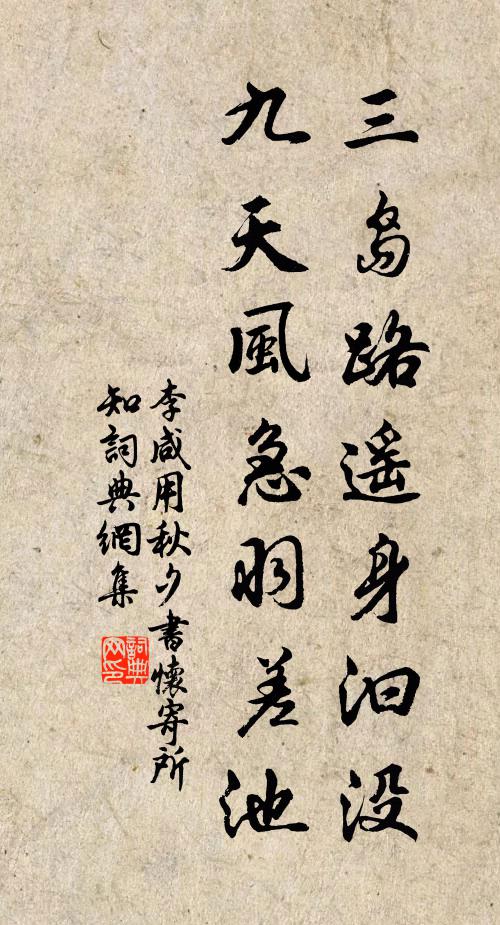 三島路遥身汩没
九天風急羽差池
李咸用秋夕書懷寄所
知詞典網集
詞典網印